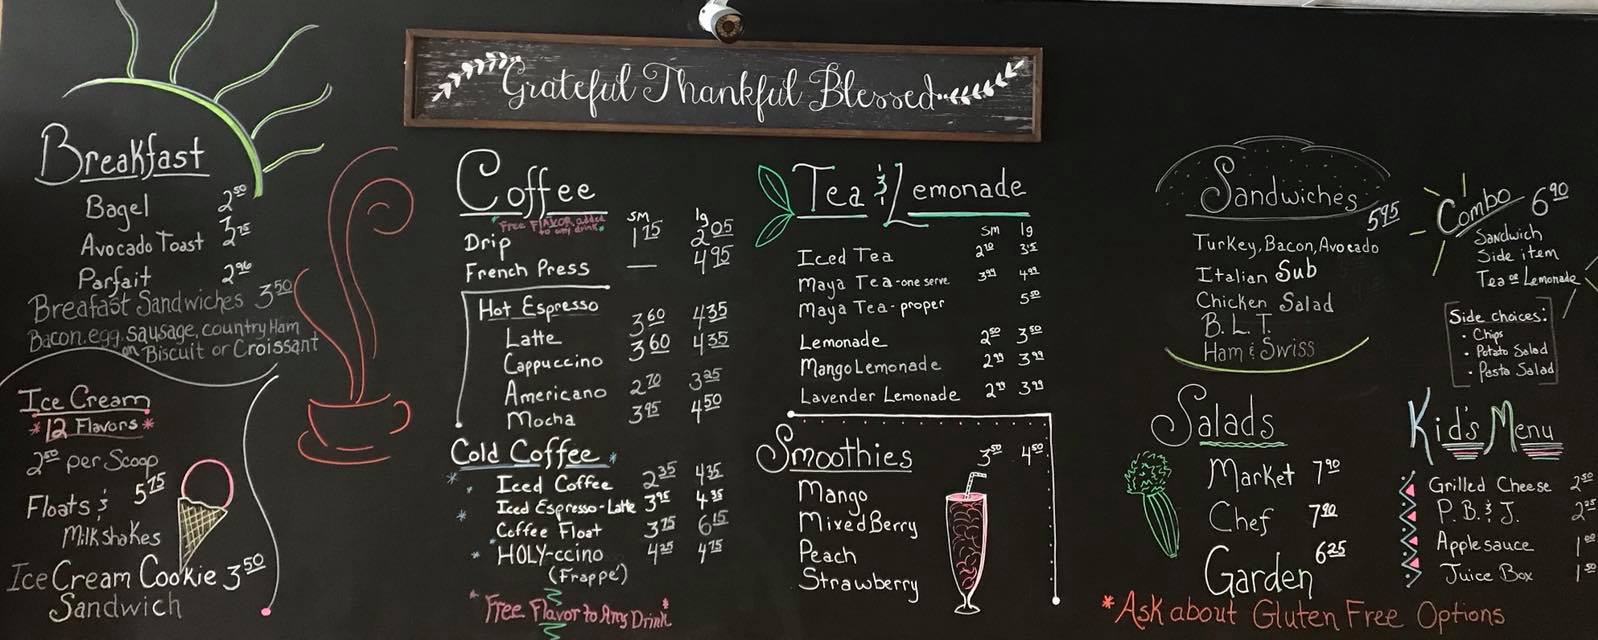 Grateful Thankful Blessed
Breakfast
Bagel 2.50
Avocado Toast
Parfait 2.96
Breafast Sandwiches 3.50
Bacon, egg, sausage, country Ham
on Biscuit or Croissant
Ice Cream
*12 Flavors*
2.50 per Scoop
Floats & 5.75
Milkshakes
Ice Cream Cookie 3.50
Sandwich
Coffee
*Free FLAVOR added
to any drink*
sm lg
Drip 1.75 2.05
French Press — 4.95
Hot Espresso
Latte 3.60 4.35
Cappuccino 3.60 4.35
Americano 2.70 3.25
Mocha 3.95 4.50
Cold Coffee
Iced Coffee 2.35 4.35
Iced Espresso-Latte 3.95 4.35
Coffee Float 3.75 6.15
HOLY-ccino 4.25 4.75
(Frappe')
*Free Flavor to Any Drink*
Tea & Lemonade
sm lg
Iced Tea
Maya Tea-one serve 3.99 4.99
Maya Tea-proper 5.50
Lemonade 2.50 3.50
Mango Lemonade 2.99 3.99
Lavender Lemonade 2.99 3.99
Smoothies 3.50 4.50
Mango
Mixed Berry
Peach
Strawberry
Sandwiches
5.95
Turkey, Bacon, Avocado
Italian Sub
Chicken Salad
B. L. T.
Ham & Swiss
Combo 6.90
Sandwich
Side item
Tea or Lemonade
Side choices:
• Chips
• Potato Salad
• Pasta Salad
Salads
Market 7.90
Chef 7.90
Garden 6.25
Kid's Menu
Grilled Cheese 2.50
P.B. & J. 2.25
Applesauce 1.00
Juice Box 1.50
*Ask about Gluten Free Options